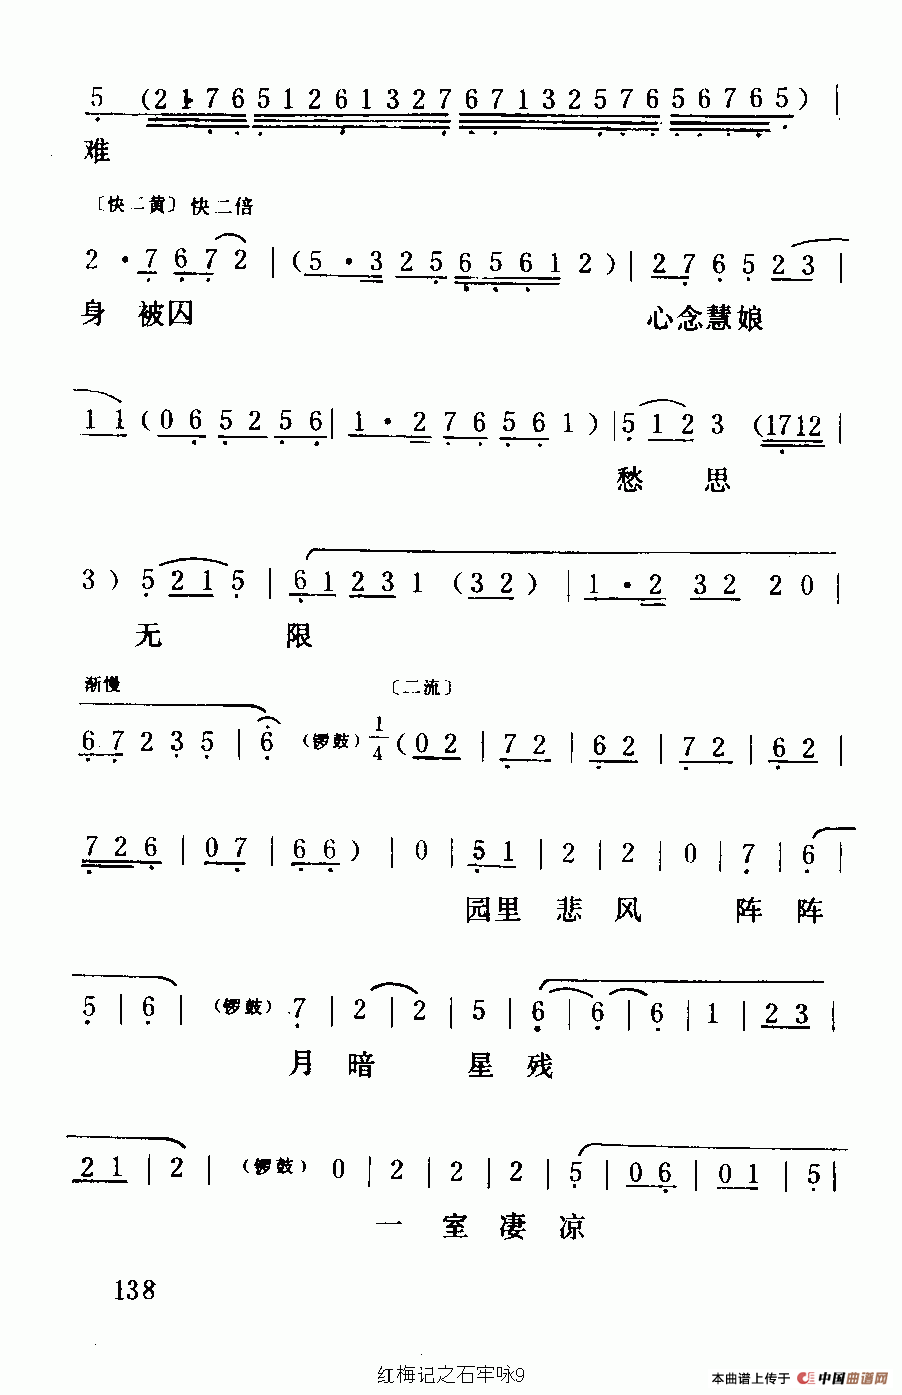 5 (2 1 7 6 5 1 2 6 1 3 2 7 6 7 1 3 2 5 7 6 5 6 7 6 5) |
难
〔快二黄〕快二倍
2 · 7 6 7 2 | (5 · 3 2 5 6 5 6 1 2) | 2 7 6 5 2 3 |
身 被囚 心念慧娘
1 1 (0 6 5 2 5 6 | 1 · 2 7 6 5 6 1) | 5 1 2 3 (1712 |
愁 思
3) 5 2 1 5 | 6 1 2 3 1 (3 2) | 1 · 2 3 2 2 0 |
无 限
渐慢 〔二流〕
6 7 2 3 5 | 6 (锣鼓) 1/4 (0 2 | 7 2 | 6 2 | 7 2 | 6 2 |
7 2 6 | 0 7 | 6 6) | 0 | 5 1 | 2 | 2 | 0 | 7 | 6 |
园里 悲 风 阵 阵
5 | 6 | (锣鼓) 7 | 2 | 2 | 5 | 6 | 6 | 6 | 1 | 2 3 |
月 暗 星 残
2 1 | 2 | (锣鼓) 0 | 2 | 2 | 2 | 5 | 0 6 | 0 1 | 5 |
一 室 凄 凉
138
红梅记之石牢咏9
本曲谱上传于 中国曲谱网